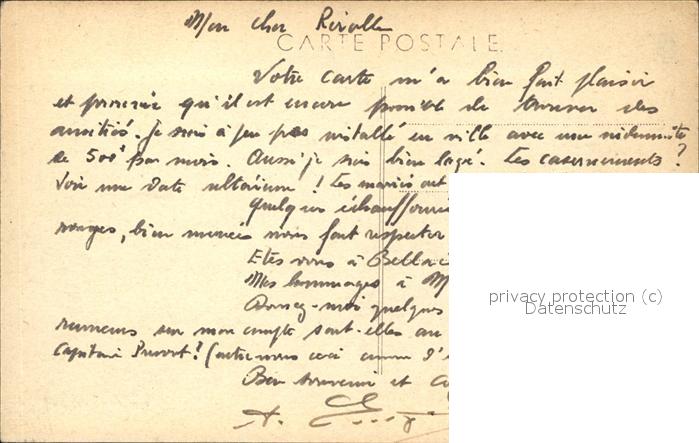 Mon cher
CARTE POSTALE
Votre carte m'a bien fait plaisir
et prouvé qu'il est encore possible de trouver des
amitiés. Je suis à peu pas installé en ville avec une indemnité
de 500f par mois. Aussi je suis bien logé. Les casernements ?
Voir une date ultérieure ! Les mariés ont
Quelques échauffourées
rouges, bien menées nous font respecter
Etes vous à
Mes hommages à M
Donnez-moi quelques
rumeurs sur mon compte sont-elles au
Capitaine ? (entre nous ceci comme
Bon souvenir et
A.
privacy protection (c)
Datenschutz